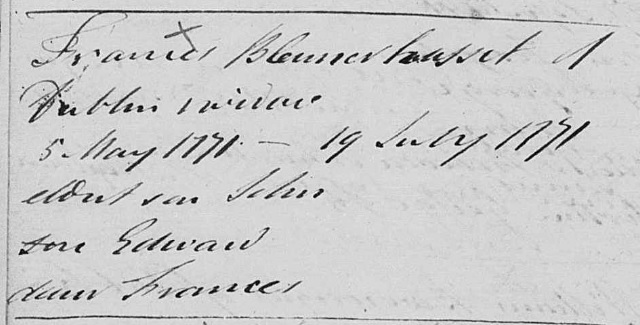 Frances Blennerhassett of
Dublin widow
5 May 1771 — 19 July 1771
eldest son John
son Edward
daur Frances